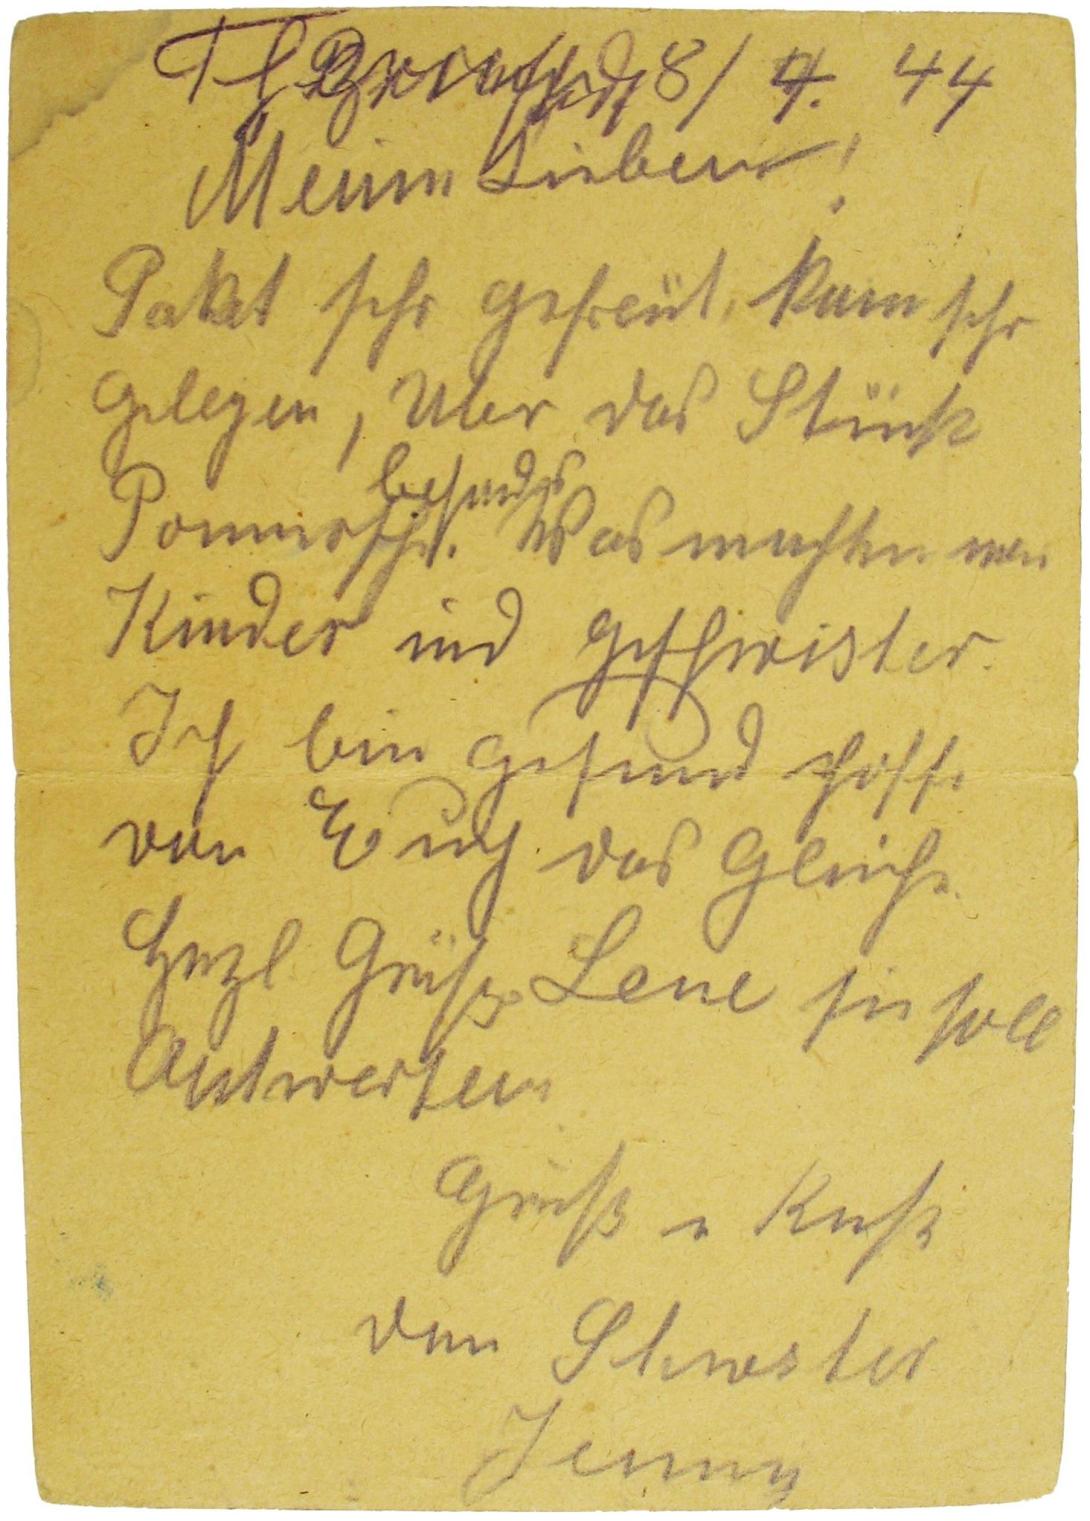 8/ 4. 44
Meine Lieben!
Paket sehr gefreut, kam sehr
gelegen, Uber das Stück
besonders
Was machen
Kinder und Geschwister.
Ich bin gesund hoffe
von Euch das Gleiche.
Herzl Grüße Lene sie soll
Antworten
Gruß u Kuß
von Schwester
Jenny